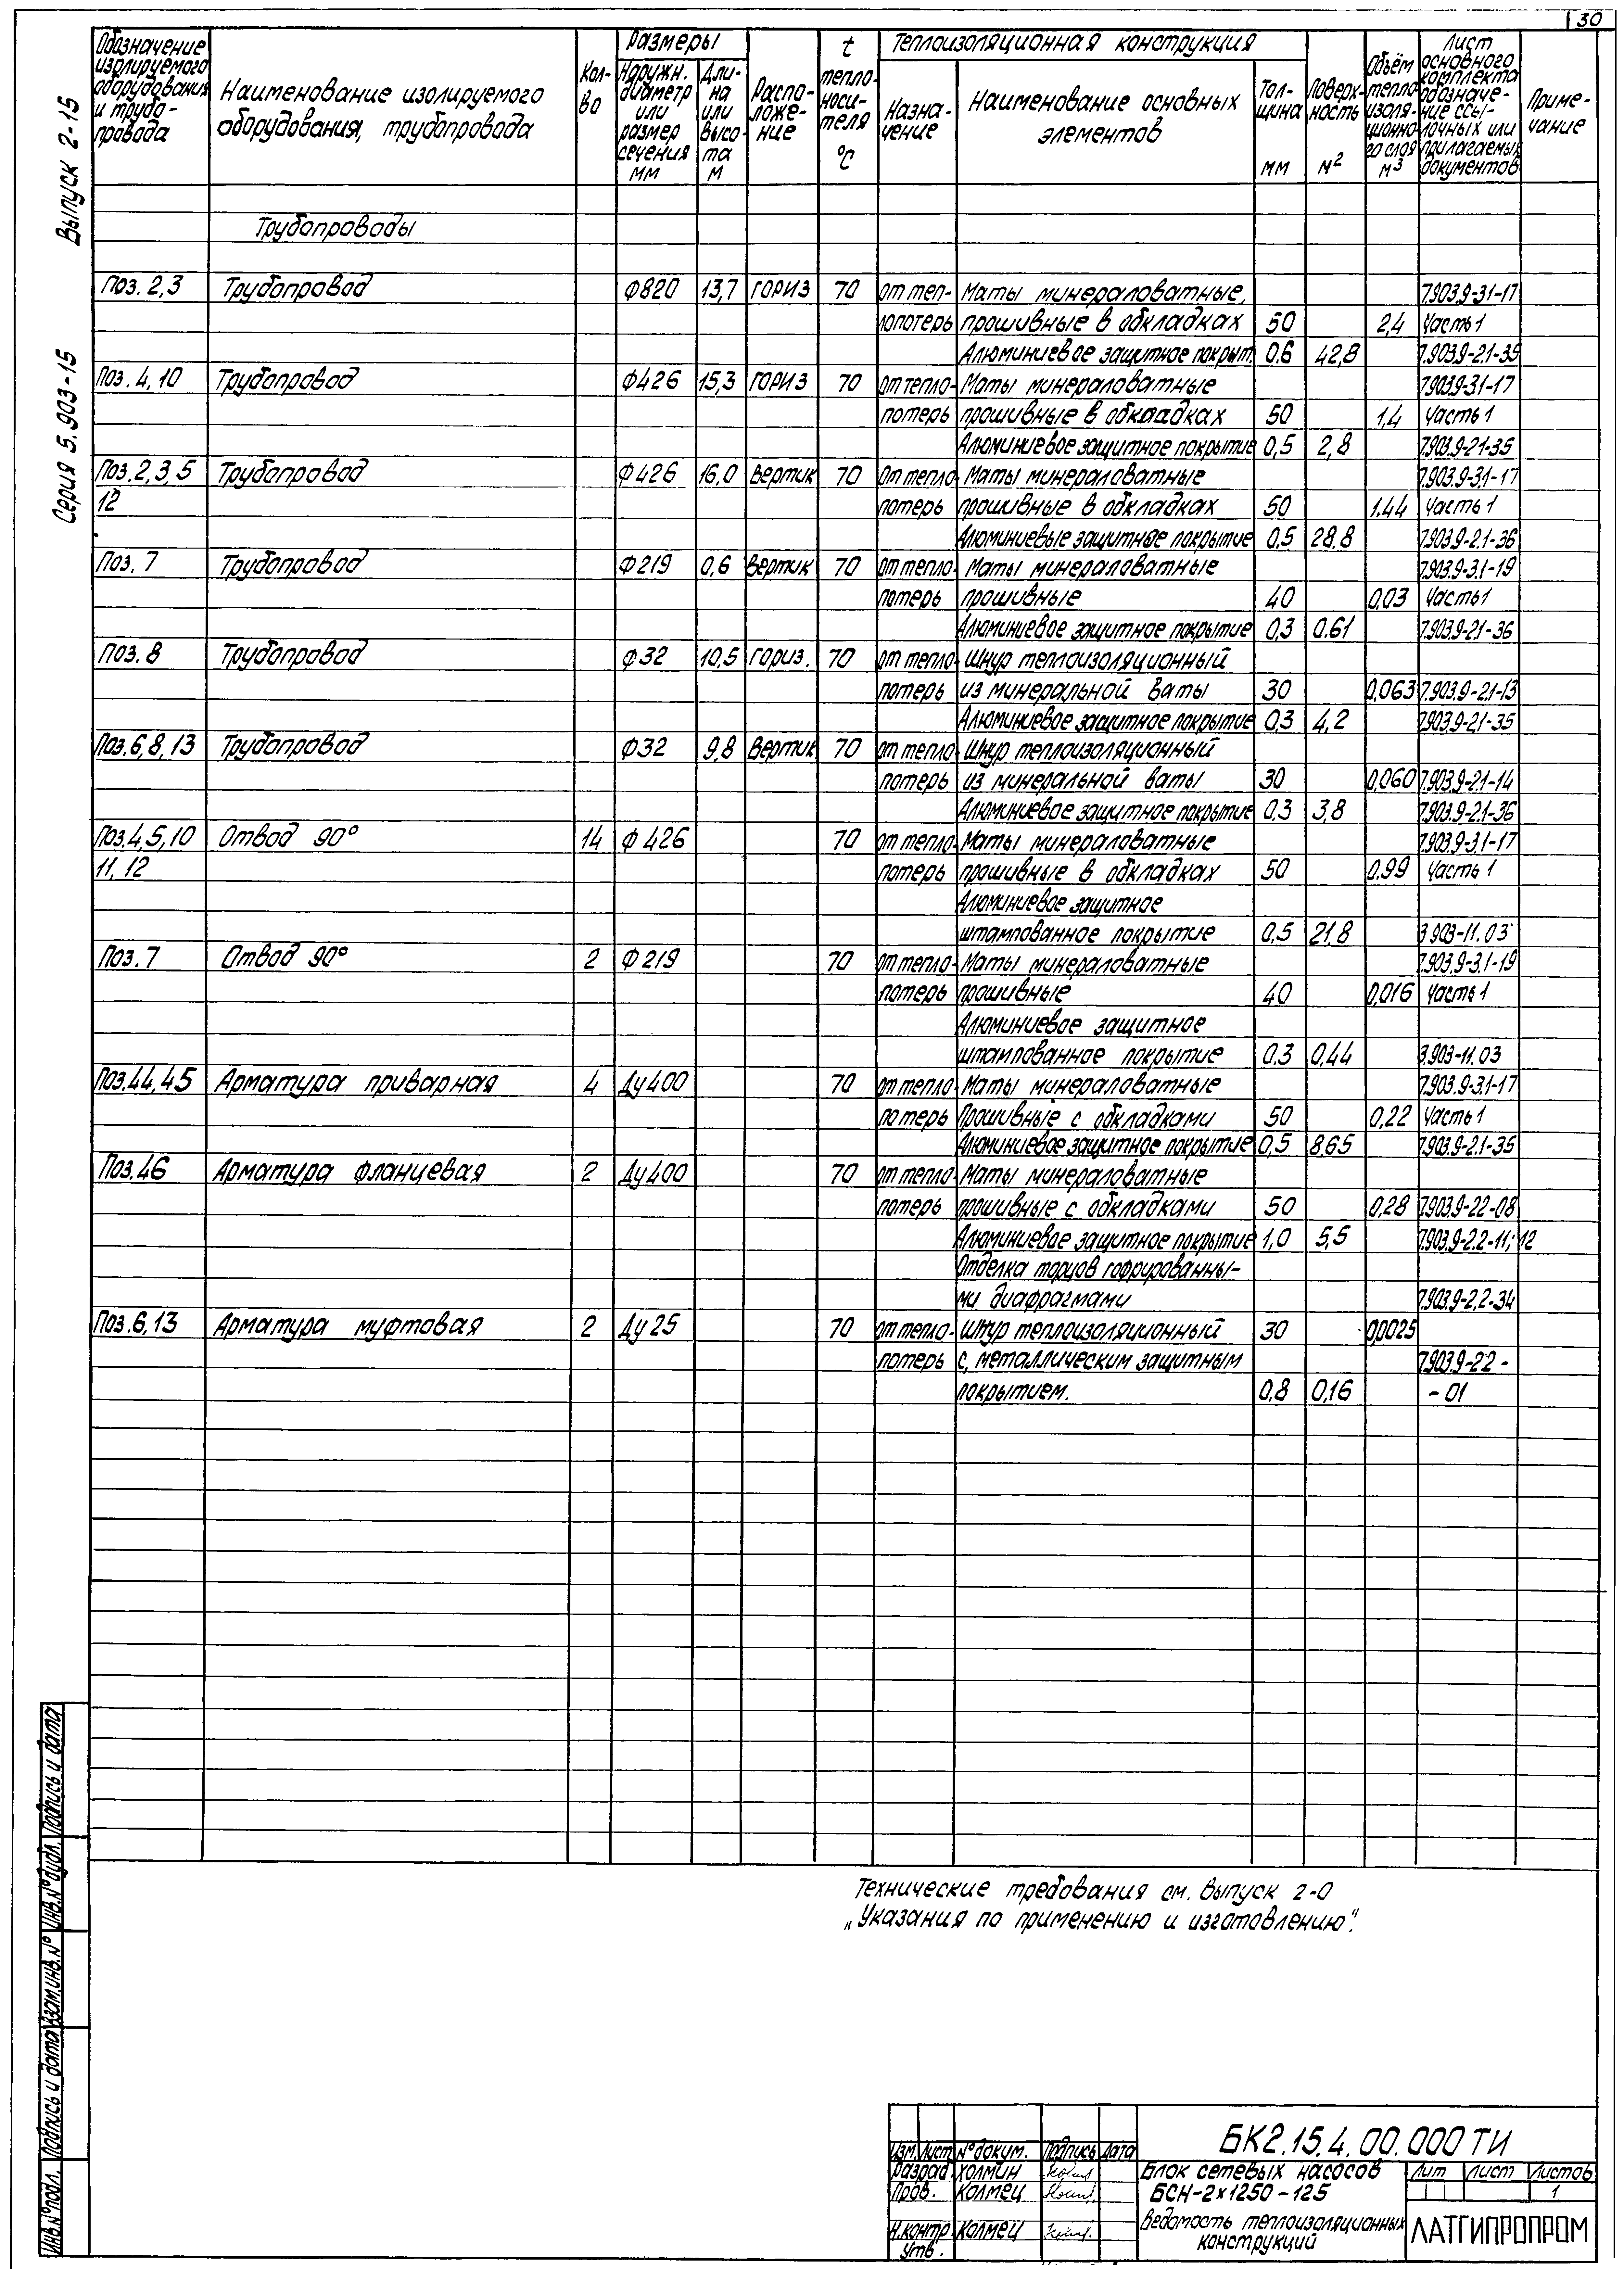 30
Выпуск 2-15
Серия 5.903-15
Обозначение изолируемого оборудования и трубо-провода | Наименование изолируемого оборудования, трубопровода | Кол-во | Размеры | Наружн. диаметр или размер сечения мм | Дли-на или высо-та м | Распо-ложе-ние | t тепло-носи-теля °С | Теплоизоляционная конструкция | Назна-чение | Наименование основных элементов | Тол-щина мм | Поверх-ность м² | Объём тепло изоля-ционно-го слоя м³ | Лист основного комплекта обозначе-ние ссы-лочных или прилагаемых документов | Приме-чание
Трубопроводы
Поз. 2,3 Трубопровод Ф820 13,7 гориз 70 от теп- Маты минераловатные, 7.903.9-3.1-17
лопотерь прошивные в обкладках 50 2,4 Часть 1
Алюминиевое защитное покрыт. 0.6 42,8 7.903.9-2.1-35
Поз. 4,10 Трубопровод Ф426 15,3 гориз 70 от тепло- Маты минераловатные 7.903.9-3.1-17
потерь прошивные в обкладках 50 1,4 Часть 1
Алюминиевое защитное покрытие 0,5 2,8 7.903.9-2.1-35
Поз. 2,3,5 Трубопровод Ф426 16,0 Вертик 70 от тепло- Маты минераловатные 7.903.9-3.1-17
12 потерь прошивные в обкладках 50 1.44 Часть 1
Алюминиевые защитное покрытие 0,5 28,8 7.903.9-2.1-36
Поз. 7 Трубопровод Ф219 0,6 Вертик 70 от тепло- Маты минераловатные 7.903.9-3.1-19
потерь прошивные 40 0,03 Часть 1
Алюминиевое защитное покрытие 0,3 0.61 7.903.9-2.1-36
Поз. 8 Трубопровод Ф32 10,5 гориз. 70 от тепло- Шнур теплоизоляционный
потерь из минеральной ваты 30 0,063 7.903.9-2.1-13
Алюминиевое защитное покрытие 0,3 4,2 7.903.9-2.1-35
Поз. 6,8,13 Трубопровод Ф32 9,8 Вертик. 70 от тепло- Шнур теплоизоляционный
потерь из минеральной ваты 30 0,060 7.903.9-2.1-14
Алюминиевое защитное покрытие 0,3 3,8 7.903.9-2.1-36
Поз.4,5,10 Отвод 90° 14 Ф 426 70 от тепло- Маты минераловатные 7.903.9-3.1-17
11, 12 потерь прошивные в обкладках 50 0.99 Часть 1
Алюминиевое защитное
штампованное покрытие 0,5 21,8 3.903-11.03
Поз. 7 Отвод 90° 2 Ф 219 70 от тепло- Маты минераловатные 7.903.9-3.1-19
потерь прошивные 40 0,016 часть 1
Алюминиевое защитное
штампованное покрытие 0.3 0,44 3.903-11.03
Поз.44,45 Арматура приварная 4 Ду400 70 от тепло- Маты минераловатные 7.903.9-3.1-17
потерь Прошивные с обкладками 50 0,22 Часть 1
Алюминиевое защитное покрытие 0,5 8,65 7.903.9-2.1-35
Поз. 46 Арматура фланцевая 2 Ду400 70 от тепло- Маты минераловатные
потерь прошивные с обкладками 50 0,28 7.903.9-2.2-08
Алюминиевое защитное покрытие 1,0 5,5 7.903.9-2.2-11; 12
Отделка торцов гофрированны-
ми диафрагмами 7.903.9-2.2-34
Поз.6,13 Арматура муфтовая 2 Ду 25 70 от тепло- Шнур теплоизоляционный 30 0,0025
потерь с, металлическим защитным 7.903.9-2.2-
покрытием. 0,8 0,16 - 01
Технические требования см. выпуск 2-0
„Указания по применению и изготовлению".
Инв.№подл. Подпись и дата Взам.инв.№ Инв.№дубл. Подпись и дата
БК2.15.4.00.000 ТИ
Изм. Лист №докум. Подпись Дата
Разраб. Холмин
Пров. Колмец
Н.контр. Колмец
Утв.
Блок сетевых насосов
БСН-2х1250-125
Ведомость теплоизоляционных
конструкций
Лит Лист Листов
1
ЛАТГИПРОПРОМ